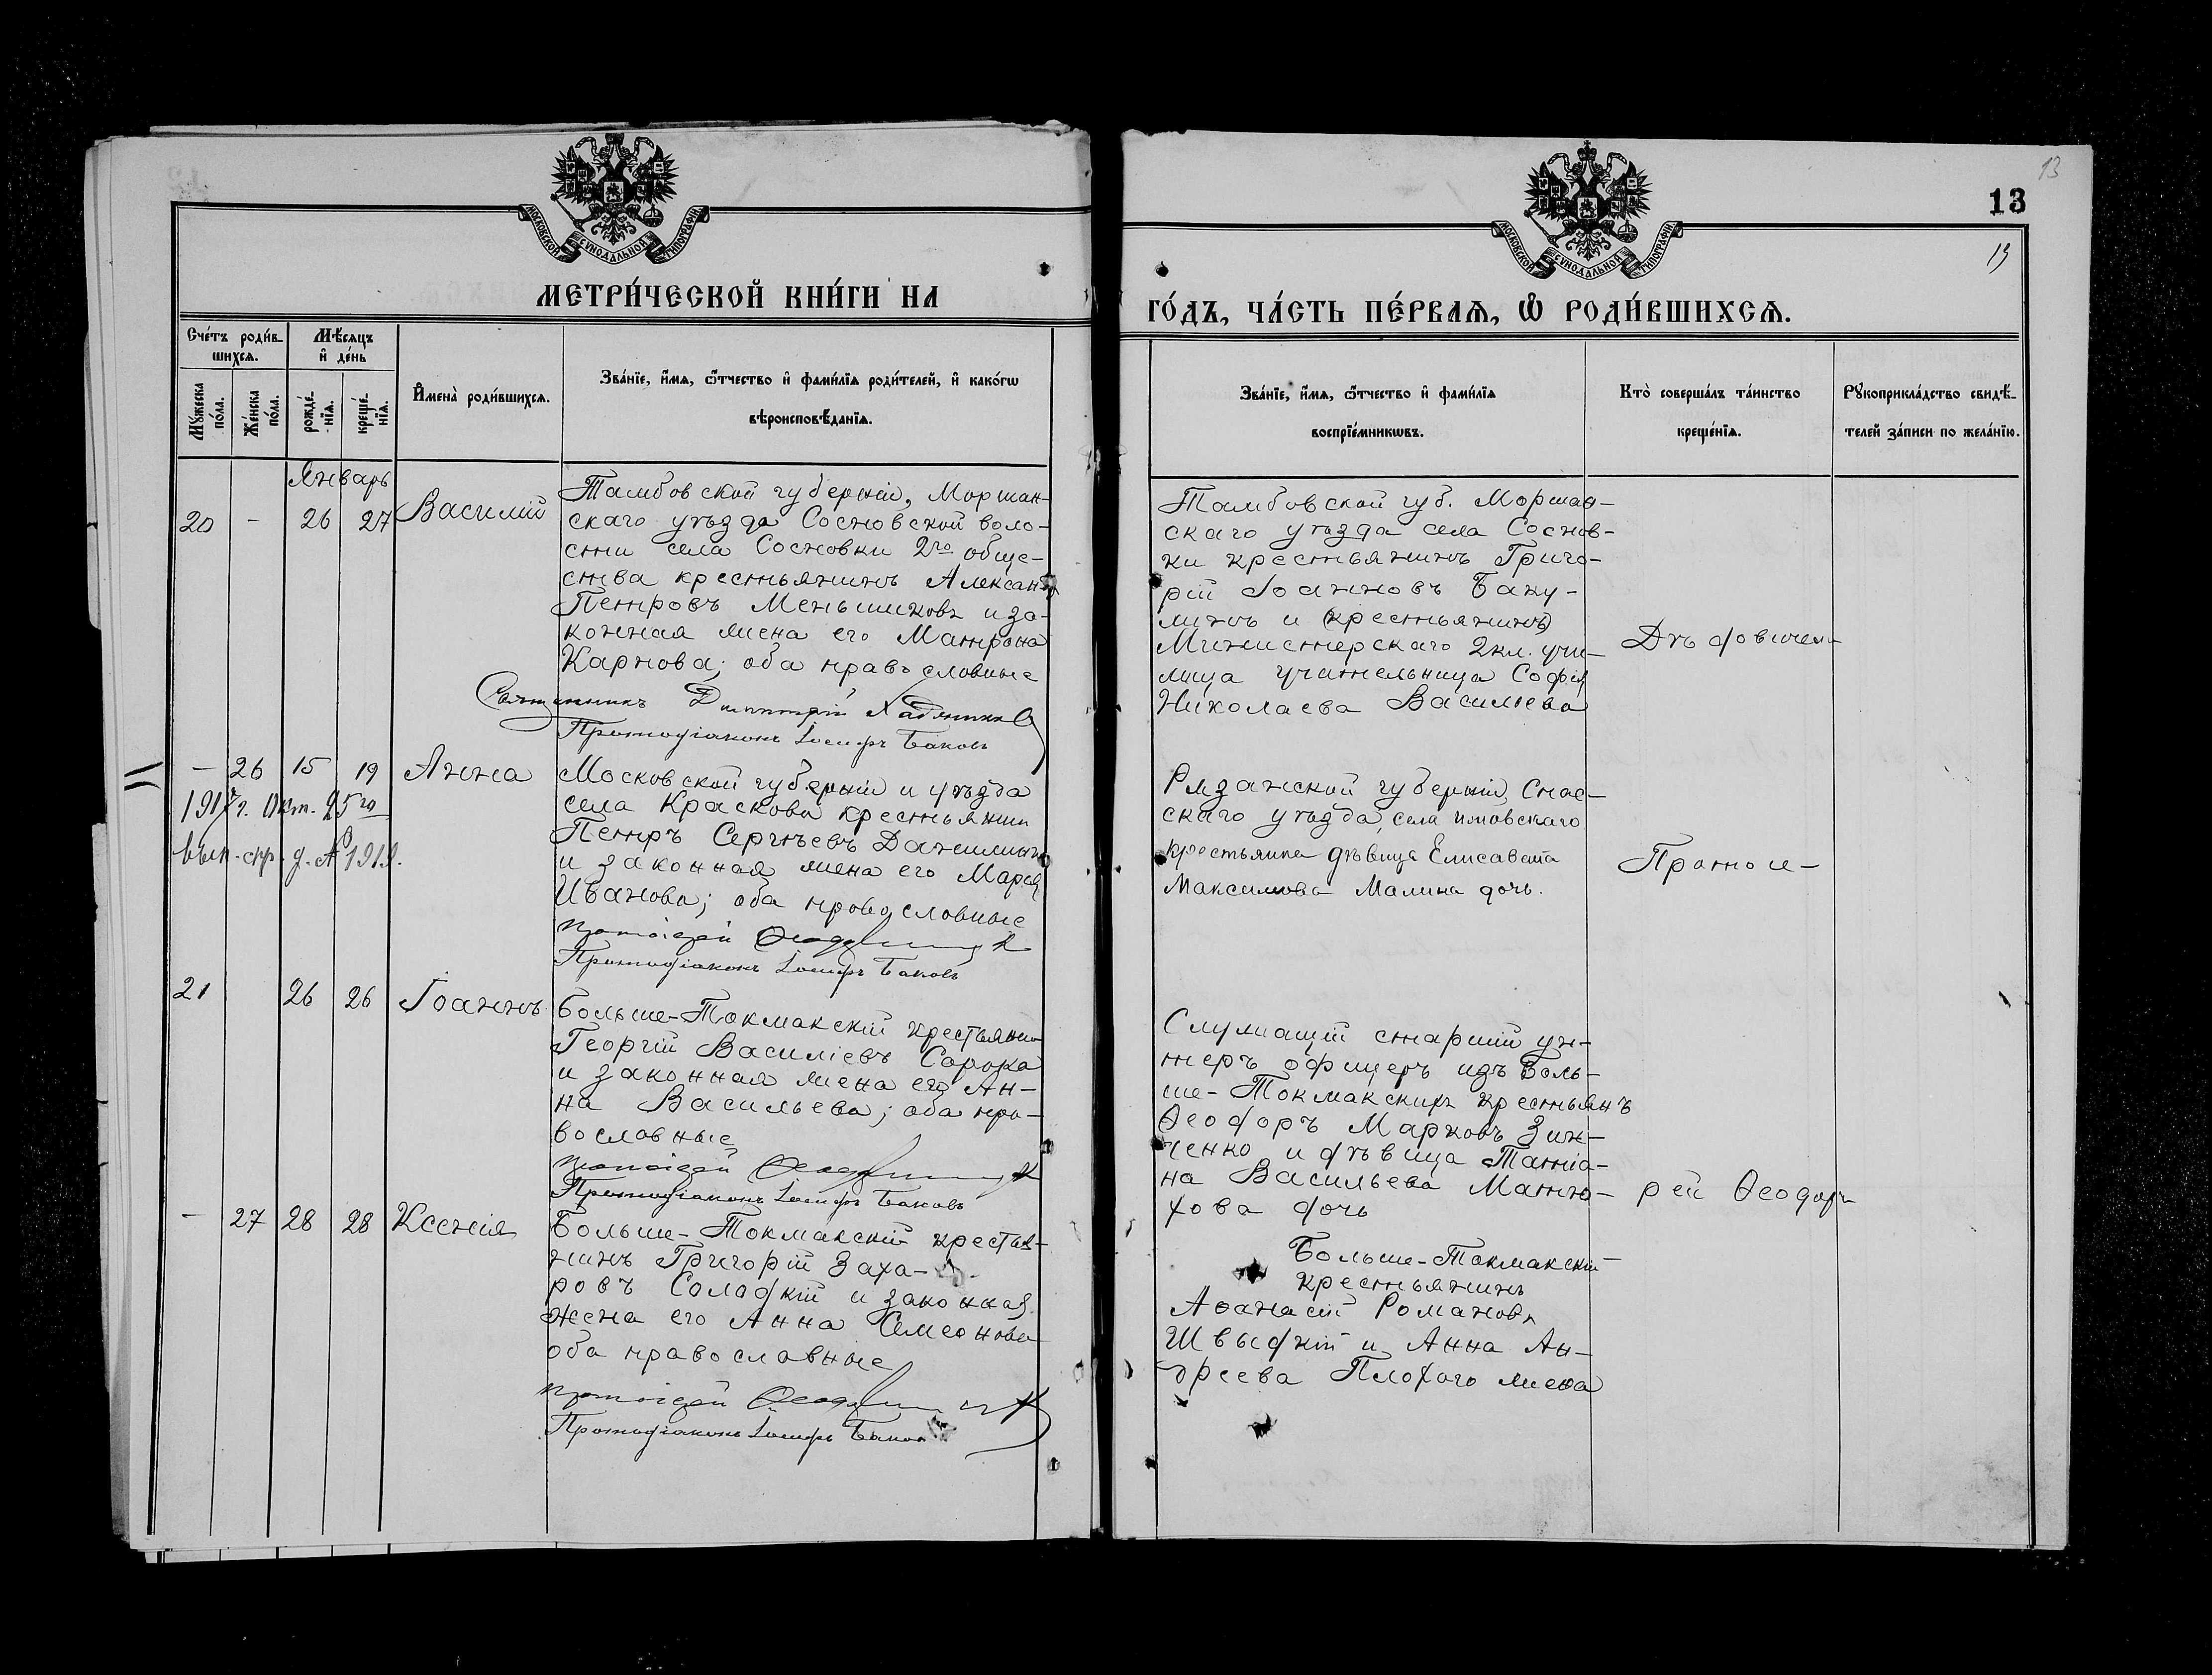 МОСКОВСКОЙ СѴНОДАЛЬНОЙ ТИПОГРАФІИ
МЕТРИ́ЧЕСКОЙ КНИ́ГИ НА
Сче́тъ роди́в-
шихсѧ.
Мѣ́сяцъ
и҆ де́нь
Мꙋ́жеска
по́ла.
Же́нска
по́ла.
рожде́-
нїѧ.
креще́-
нїѧ.
И҆мена̀ роди́вшихсѧ.
Зва́нїе, и҆́мѧ, ѻ҆́тчество и҆ фами́лїѧ роди́телей, и҆ како́гѡ
вѣроисповѣ́данїѧ.
Январь
20 - 26 27 Василій
Тамбовской губерніи, Моршан-
скаго уѣзда Сосновской воло-
сти села Сосновки 2го обще-
ства крестьянинъ Алексан
Петровъ Меньшиковъ и за-
конная жена его Матрона
Карпова; оба православные
Священникъ Димитрій
Протодіаконъ Іосифъ Баковъ
- 26 15 19 Анна
1917г. Окт. 25го
вып.
Московской губерніи и уѣзда
села Краскова крестьянин
Петръ Сергѣевъ Данилинъ
и законная жена его Марія
Иванова; оба православные
Протоіерей
Протодіаконъ Іосифъ Баковъ
21 26 26 Іоаннъ
Больше-Токмакскій крестьянин
Георгій Василіевъ Сорока
и законная жена его Ан-
на Васильева; оба пра-
вославные
Протоіерей
Протодіаконъ Іосифъ Баковъ
- 27 28 28 Ксенія
Больше-Токмакскій крестья-
нинъ Григорій Заха-
ровъ Солодкій и законная
жена его Анна Симеонова
оба православные
Протоіерей
Протодіаконъ Іосифъ Баков
13
13
13
МОСКОВСКОЙ СѴНОДАЛЬНОЙ ТИПОГРАФІИ
ГО́ДЪ, ЧА́СТЬ ПЕ́РВАѦ, Ѡ҆ РОДИ́ВШИХСѦ.
Зва́нїе, и҆́мѧ, ѻ҆́тчество и҆ фами́лїѧ
воспрїе́мникѡвъ.
Кто̀ соверша́лъ та́инство
креще́нїѧ.
Рꙋкоприкла́дство свидѣ́-
телей за́писи по жела́нїю.
Тамбовской губ. Моршан-
скаго уѣзда села Соснов-
ки крестьянинъ Григо-
рій Іоанновъ Баку-
линъ и (крестьянинъ)
Министерскаго 2кл. учи-
лища учительница Софія
Николаева Васильева
Рязанской губерніи, Спас-
скаго уѣзда, села Ижовскаго
крестьянка дѣвица Елисавета
Максимова Малина дочь.
Прото и-
Служащій старшій ун-
теръ офицеръ изъ Боль-
ше-Токмакскихъ крестьянъ
Ѳеодоръ Марковъ Зин-
ченко и дѣвица Татіа-
на Васильева Матю-
хова дочь
рей Ѳеодоръ
Больше-Токмакскій
крестьянинъ
Аѳанасій Романовъ
Швыдкій и Анна Ан-
дреева Плохого жена